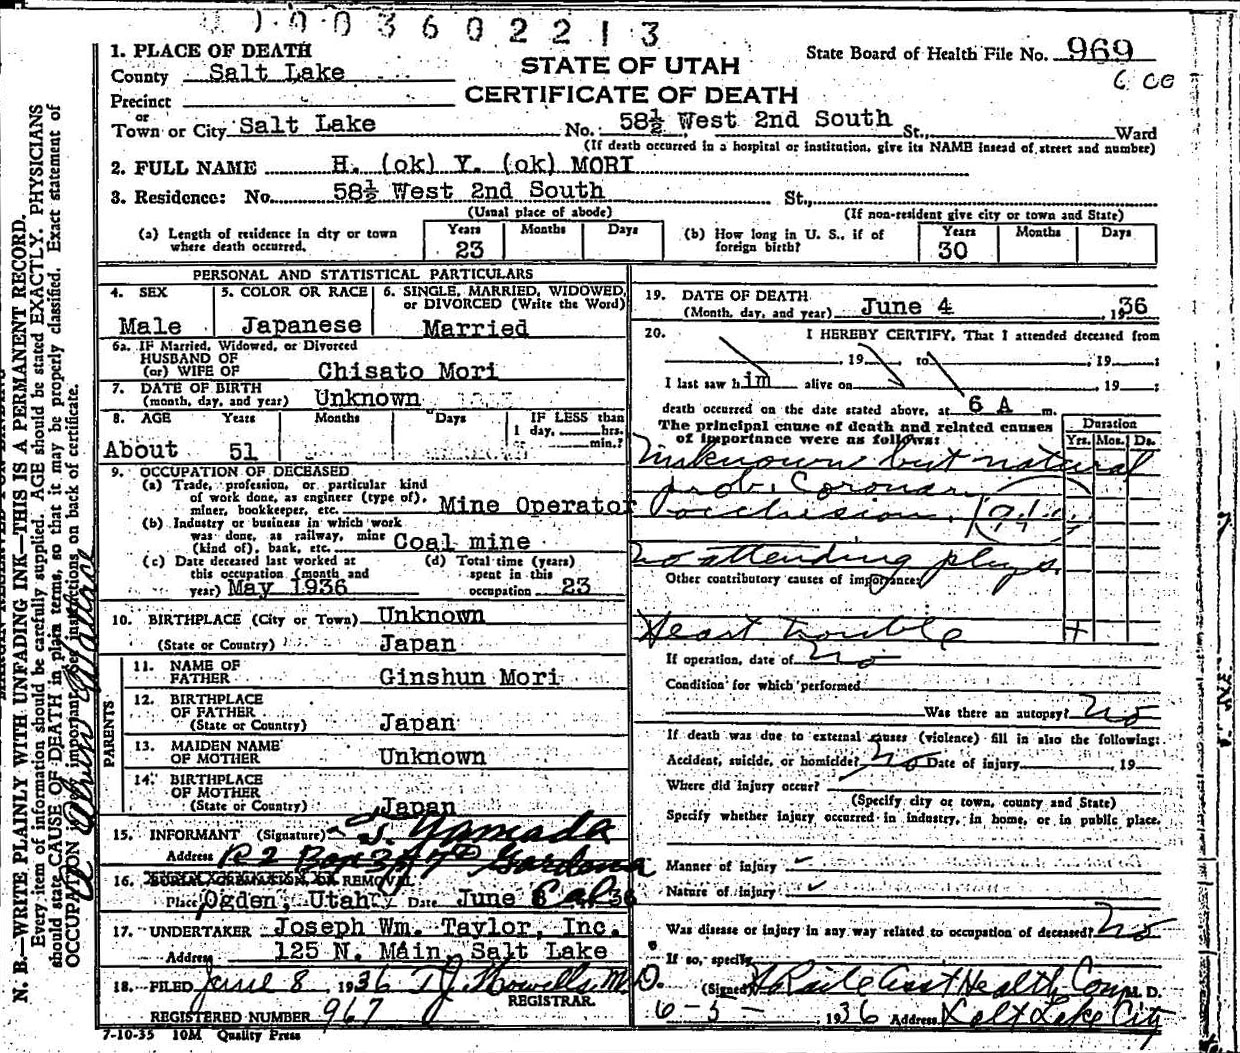 0 1 0 0 3 6 0 2 2 1 3
1. PLACE OF DEATH
County Salt Lake
Precinct
or
Town or City Salt Lake
STATE OF UTAH
CERTIFICATE OF DEATH
State Board of Health File No. 969
No. 58½ West 2nd South St., Ward
(If death occurred in a hospital or institution, give its NAME instead of street and number)
2. FULL NAME H. (ok) Y. (ok) MORI
3. Residence: No. 58½ West 2nd South St.,
(Usual place of abode)
(If non-resident give city or town and State)
(a) Length of residence in city or town where death occurred.
Years 23 Months Days
(b) How long in U. S., if of foreign birth?
Years 30 Months Days
PERSONAL AND STATISTICAL PARTICULARS
4. SEX
Male
5. COLOR OR RACE
Japanese
6. SINGLE, MARRIED, WIDOWED, or DIVORCED (Write the Word)
Married
6a. IF Married, Widowed, or Divorced
HUSBAND OF
(or) WIFE OF Chisato Mori
7. DATE OF BIRTH
(month, day, and year) Unknown
8. AGE Years Months Days IF LESS than
1 day, hrs.
or min.?
About 51
9. OCCUPATION OF DECEASED
(a) Trade, profession, or particular kind
of work done, as engineer (type of),
miner, bookkeeper, etc. Mine Operator
(b) Industry or business in which work
was done, as railway, mine
(kind of), bank, etc. Coal mine
(c) Date deceased last worked at
this occupation (month and
year) May 1936
(d) Total time (years)
spent in this
occupation 23
10. BIRTHPLACE (City or Town) Unknown
(State or Country) Japan
PARENTS
11. NAME OF
FATHER Ginshun Mori
12. BIRTHPLACE
OF FATHER
(State or Country) Japan
13. MAIDEN NAME
OF MOTHER Unknown
14. BIRTHPLACE
OF MOTHER
(State or Country) Japan
15. INFORMANT (Signature) S. Yamada
Address R 2 Box Gardena
Cal
16. BURIAL, CREMATION, OR REMOVAL
Place Ogden, Utah Date June 36
17. UNDERTAKER Joseph Wm. Taylor, Inc.
Address 125 N. Main, Salt Lake
18. FILED June 8, 1936 T J Howells, M.D.
REGISTRAR.
REGISTERED NUMBER 967
7-10-35 10M Quality Press
19. DATE OF DEATH
(Month, day, and year) June 4, 1936
20. I HEREBY CERTIFY, That I attended deceased from
, 19 to , 19 ;
I last saw him alive on , 19 ;
death occurred on the date stated above, at 6 A m.
The principal cause of death and related causes
of importance were as follows:
Duration
Yrs. Mos. Ds.
Unknown but natural
prob. Coronary
occlusion.
No attending phys.
Other contributory causes of importance:
Heart trouble +
If operation, date of no
Condition for which performed
Was there an autopsy? no
If death was due to external causes (violence) fill in also the following:
Accident, suicide, or homicide? no Date of injury , 19
Where did injury occur?
(Specify city or town, county and State)
Specify whether injury occurred in industry, in home, or in public place.
Manner of injury
Nature of injury
Was disease or injury in any way related to occupation of deceased? no
If so, specify
(Signed) Asst Health Com M. D.
6-5-, 1936 Address Salt Lake City
N. B.—WRITE PLAINLY WITH UNFADING INK—THIS IS A PERMANENT RECORD.
Every item of information should be carefully supplied. AGE should be stated EXACTLY. PHYSICIANS
should state CAUSE OF DEATH in plain terms, so that it may be properly classified. Exact statement of
OCCUPATION is very important. See instructions on back of certificate.